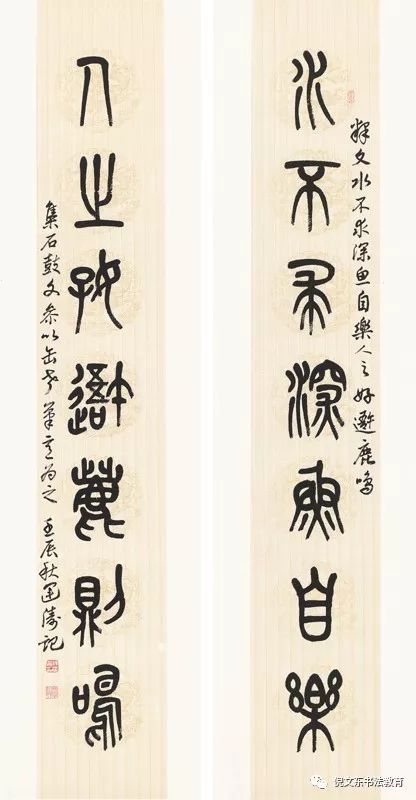 釋文水不求深魚自樂人之好避鹿鳴
水不求深魚自樂
人之好避鹿則鳴
集石鼓文参以缶老筆意为之 壬辰秋運濤記
倪文东书法教育